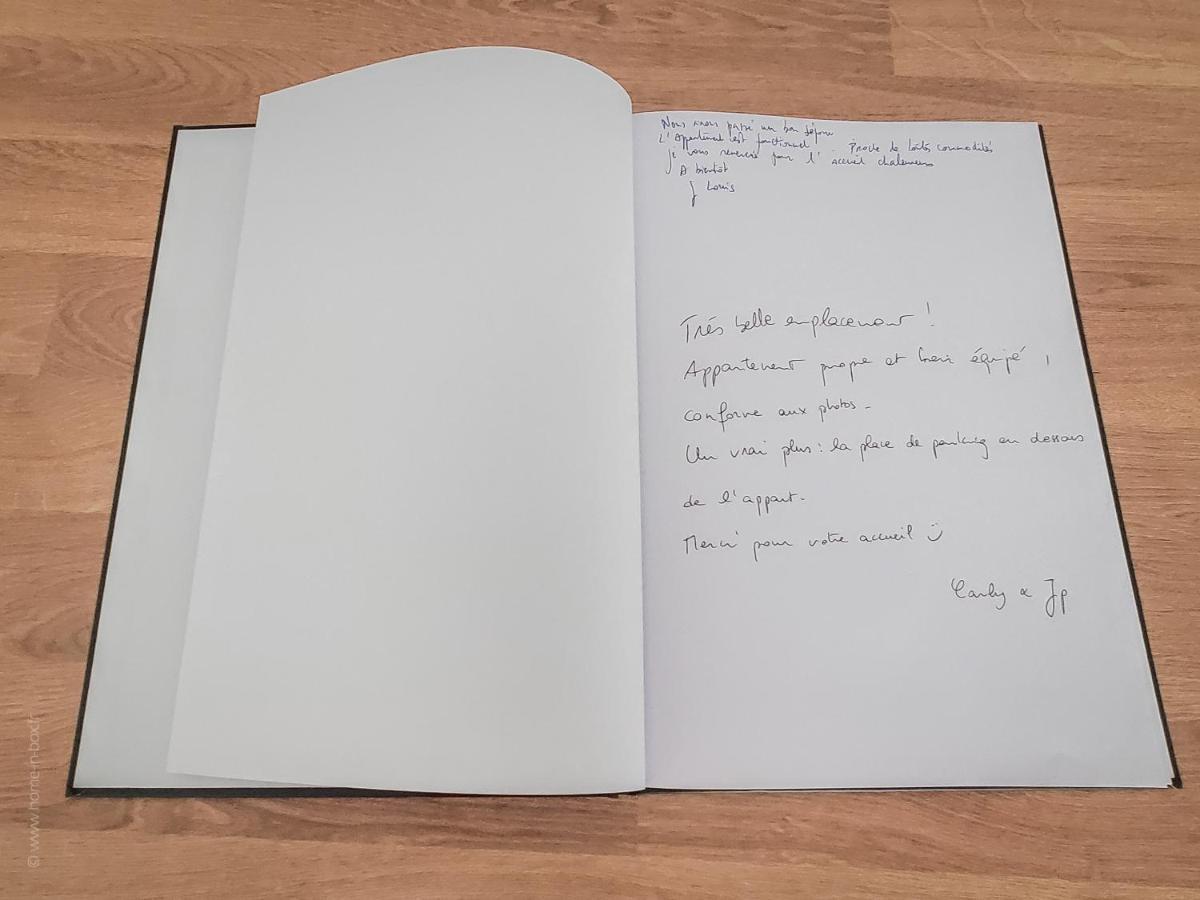 Nous avons passé un bon séjour
L'appartement est fonctionnel. Proche de toutes commodités
Je vous remercie pour l'accueil chaleureux
A bientôt
J Louis
Très belle emplacement !
Appartement propre et bien équipé,
conforme aux photos.
Un vrai plus : la place de parking en dessous
de l'appart.
Merci pour votre accueil :)
& Jp
© www.home-n-box.fr